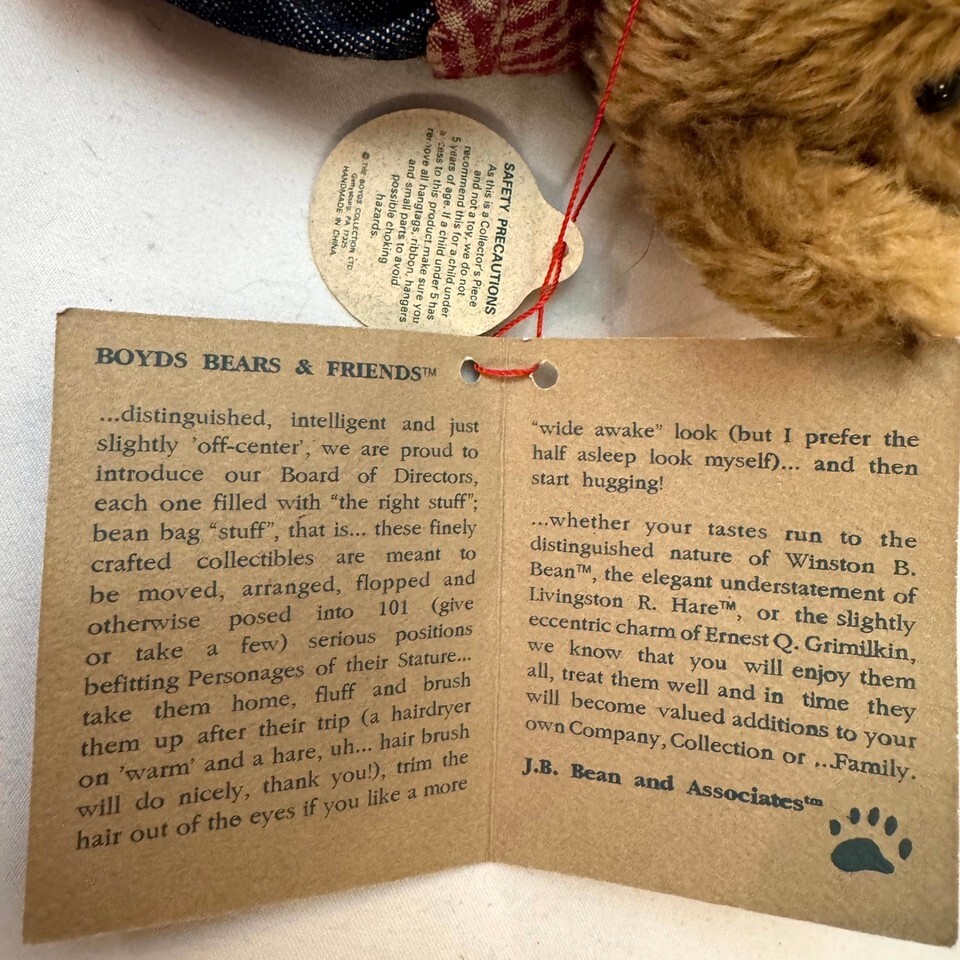 SAFETY PRECAUTIONS
As this is a Collector's Piece
and not a toy, we do not
recommend this for a child under
5 years of age. If a child under 5 has
access to this product make sure you
remove all hangtags, ribbon, hangers
and small parts to avoid
possible choking
hazards.
© THE BOYDS COLLECTION LTD
Gettysburg, PA 17325
HANDMADE IN CHINA
BOYDS BEARS & FRIENDS™
...distinguished, intelligent and just
slightly 'off-center', we are proud to
introduce our Board of Directors,
each one filled with "the right stuff";
bean bag "stuff", that is... these finely
crafted collectibles are meant to
be moved, arranged, flopped and
otherwise posed into 101 (give
or take a few) serious positions
befitting Personages of their Stature...
take them home, fluff and brush
them up after their trip (a hairdryer
on 'warm' and a hare, uh... hair brush
will do nicely, thank you!), trim the
hair out of the eyes if you like a more
"wide awake" look (but I prefer the
half asleep look myself)... and then
start hugging!
...whether your tastes run to the
distinguished nature of Winston B.
Bean™, the elegant understatement of
Livingston R. Hare™, or the slightly
eccentric charm of Ernest Q. Grimilkin,
we know that you will enjoy them
all, treat them well and in time they
will become valued additions to your
own Company, Collection or ...Family.
J.B. Bean and Associates™